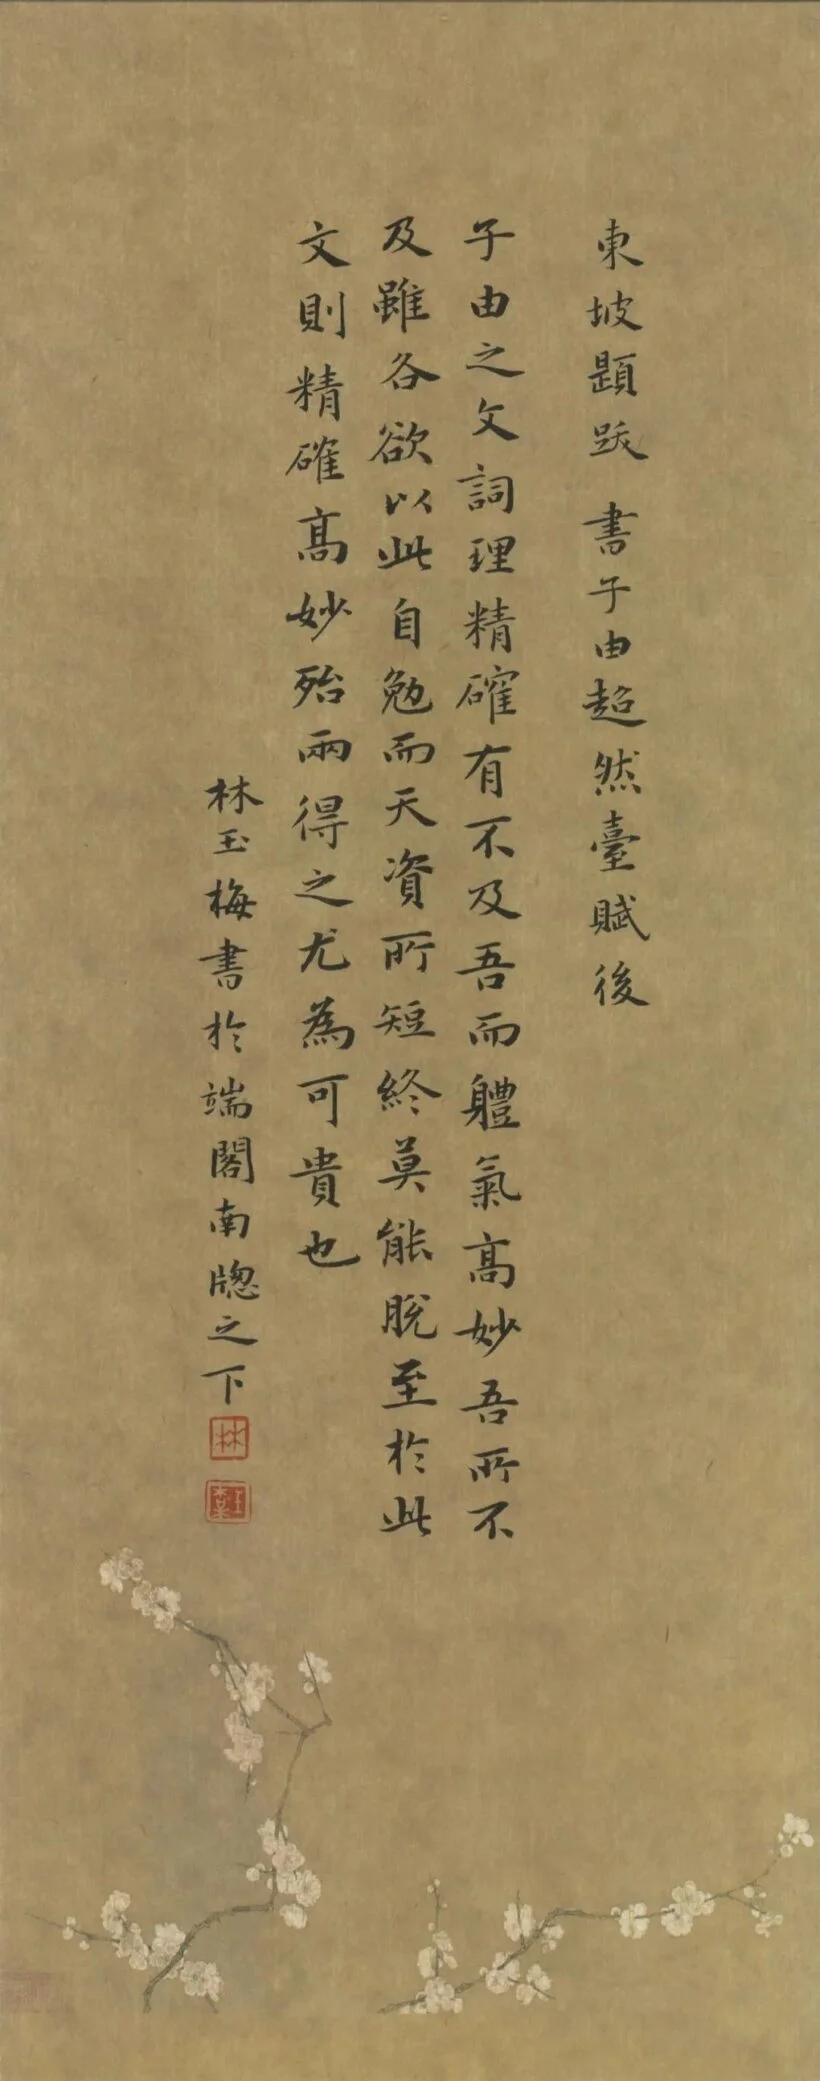 東坡題跋 書子由超然臺賦後
子由之文詞理精確有不及吾而軆氣高妙吾所不
及雖各欲以此自勉而天資所短終莫能脫至於此
文則精確高妙殆兩得之尤為可貴也
林玉梅書於端閣南牕之下
林